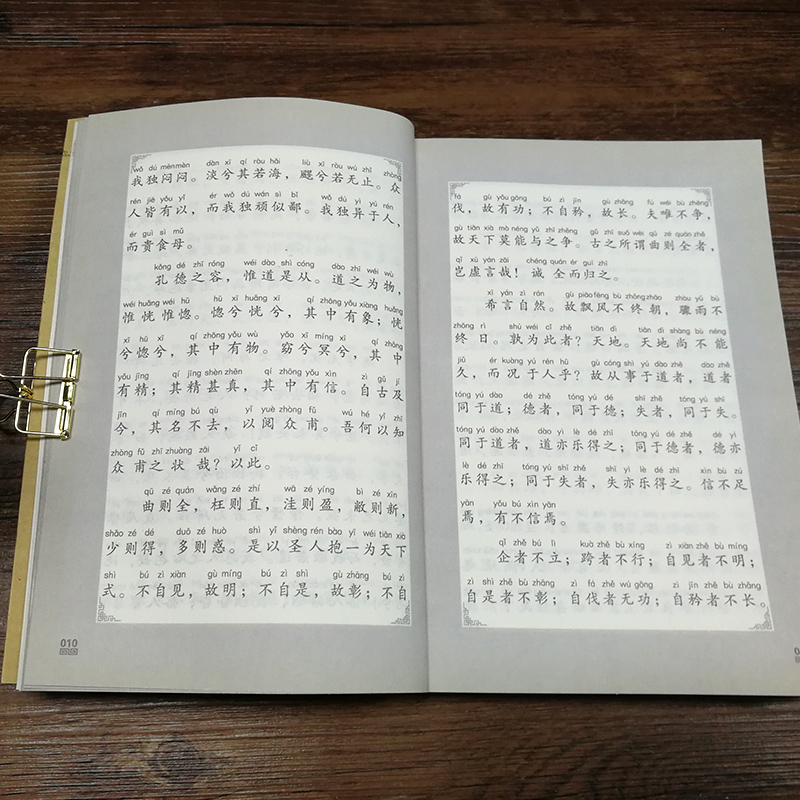 wǒ dú mènmèn dàn xī qí ruò hǎi liù xī ruò wú zhǐ zhòng
我独闷闷。淡兮其若海，飂兮若无止。众
rén jiē yǒu yǐ ér wǒ dú wán sì bǐ wǒ dú yì yú rén
人皆有以，而我独顽似鄙。我独异于人，
ér guì sì mǔ
而贵食母。
kǒng dé zhī róng wéi dào shì cóng dào zhī wéi wù
孔德之容，惟道是从。道之为物，
wéi huǎng wéi hū hū xī huǎng xī qí zhōng yǒu xiàng huǎng
惟恍惟惚。惚兮恍兮，其中有象；恍
xī hū xī qí zhōng yǒu wù yǎo xī míng xī qí zhōng
兮惚兮，其中有物。窈兮冥兮，其中
yǒu jīng qí jīng shèn zhēn qí zhōng yǒu xìn zì gǔ jí
有精；其精甚真，其中有信。自古及
jīn qí míng bú qù yǐ yuè zhòng fǔ wú hé yǐ zhī
今，其名不去，以阅众甫。吾何以知
zhòng fǔ zhī zhuàng zāi yǐ cǐ
众甫之状哉？以此。
qū zé quán wǎng zé zhí wā zé yíng bì zé xīn
曲则全，枉则直，洼则盈，敝则新，
shǎo zé dé duō zé huò shì yǐ shèng rén bào yī wéi tiān xià
少则得，多则惑。是以圣人抱一为天下
shì bú zì xiàn gù míng bú zì shì gù zhāng bú zì
式。不自见，故明；不自是，故彰；不自
010
fá gù yǒu gōng bú zì jīn gù zhǎng fú wéi bù zhēng
伐，故有功；不自矜，故长。夫唯不争，
gù tiān xià mò néng yǔ zhī zhēng gǔ zhī suǒ wèi qū zé quán zhě
故天下莫能与之争。古之所谓曲则全者，
qǐ xū yán zāi chéng quán ér guī zhī
岂虚言哉！诚全而归之。
xī yán zì rán gù piāo fēng bù zhōng zhāo zhòu yǔ bù
希言自然。故飘风不终朝，骤雨不
zhōng rì shú wéi cǐ zhě tiān dì tiān dì shàng bù néng
终日。孰为此者？天地。天地尚不能
jiǔ ér kuàng yú rén hū gù cóng shì yú dào zhě dào zhě
久，而况于人乎？故从事于道者，道者
tóng yú dào dé zhě tóng yú dé shī zhě tóng yú shī
同于道；德者，同于德；失者，同于失。
tóng yú dào zhě dào yì lè dé zhī tóng yú dé zhě dé yì
同于道者，道亦乐得之；同于德者，德亦
lè dé zhī tóng yú shī zhě shī yì lè dé zhī xìn bù zú
乐得之；同于失者，失亦乐得之。信不足
yān yǒu bú xìn yān
焉，有不信焉。
qǐ zhě bù lì kuà zhě bù xíng zì xiàn zhě bù míng
企者不立；跨者不行；自见者不明；
zì shì zhě bù zhāng zì fá zhě wú gōng zì jīn zhě bù zhǎng
自是者不彰；自伐者无功；自矜者不长。